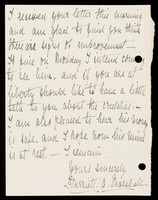 I received your letter this morning
and am glad to find you think
there are signs of improvement –
If fine on Monday I intend coming
to see him, and if you are at
liberty should like to have a little
talk to you about the
I am also pleased to hear his money
is safe, and I hope now his mind
is at rest – I remain
Yours sincerely
Harriett A. Marshall